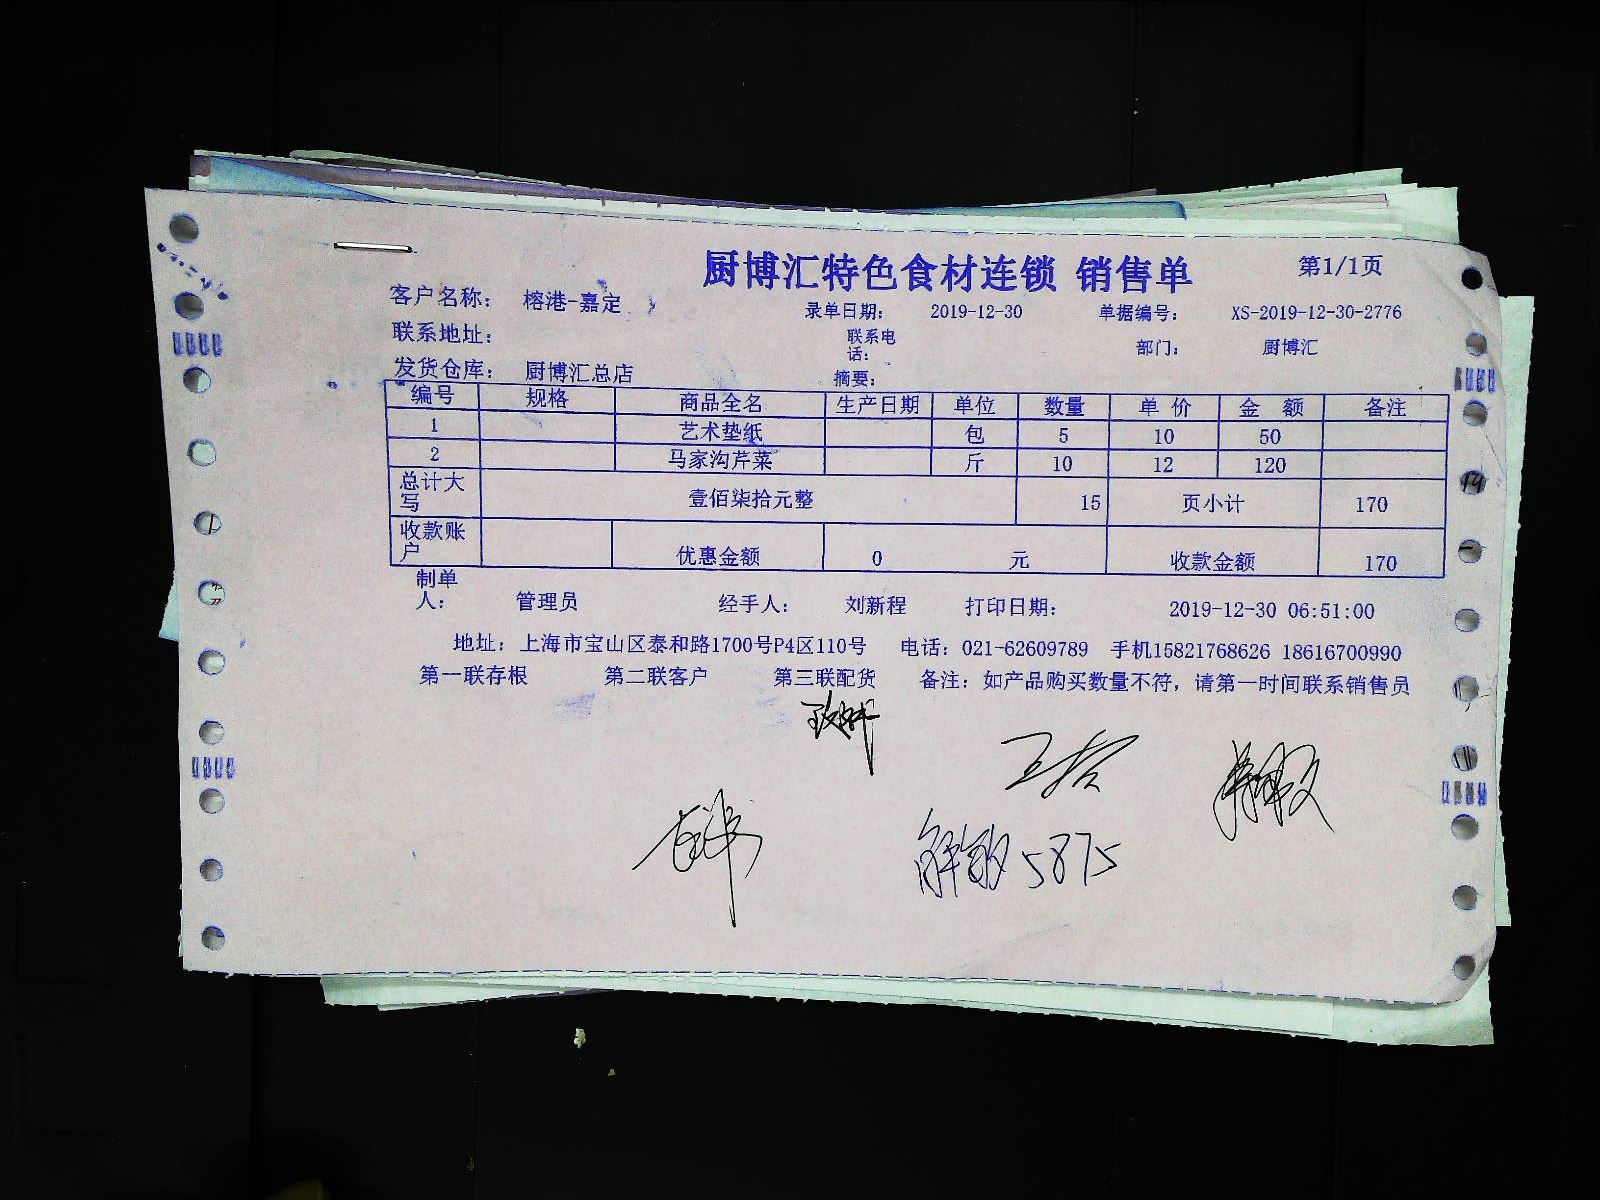 厨博汇特色食材连锁 销售单 第1/1页
客户名称： 榕港-嘉定 录单日期： 2019-12-30 单据编号： XS-2019-12-30-2776
联系地址： 联系电话： 部门： 厨博汇
发货仓库： 厨博汇总店 摘要：
编号 规格 商品全名 生产日期 单位 数量 单 价 金 额 备注
1 艺术垫纸 包 5 10 50
2 马家沟芹菜 斤 10 12 120
总计大写 壹佰柒拾元整 15 页小计 170
收款账户 优惠金额 0 元 收款金额 170
制单人： 管理员 经手人： 刘新程 打印日期： 2019-12-30 06:51:00
地址：上海市宝山区泰和路1700号P4区110号 电话：021-62609789 手机15821768626 18616700990
第一联存根 第二联客户 第三联配货 备注：如产品购买数量不符，请第一时间联系销售员
5875